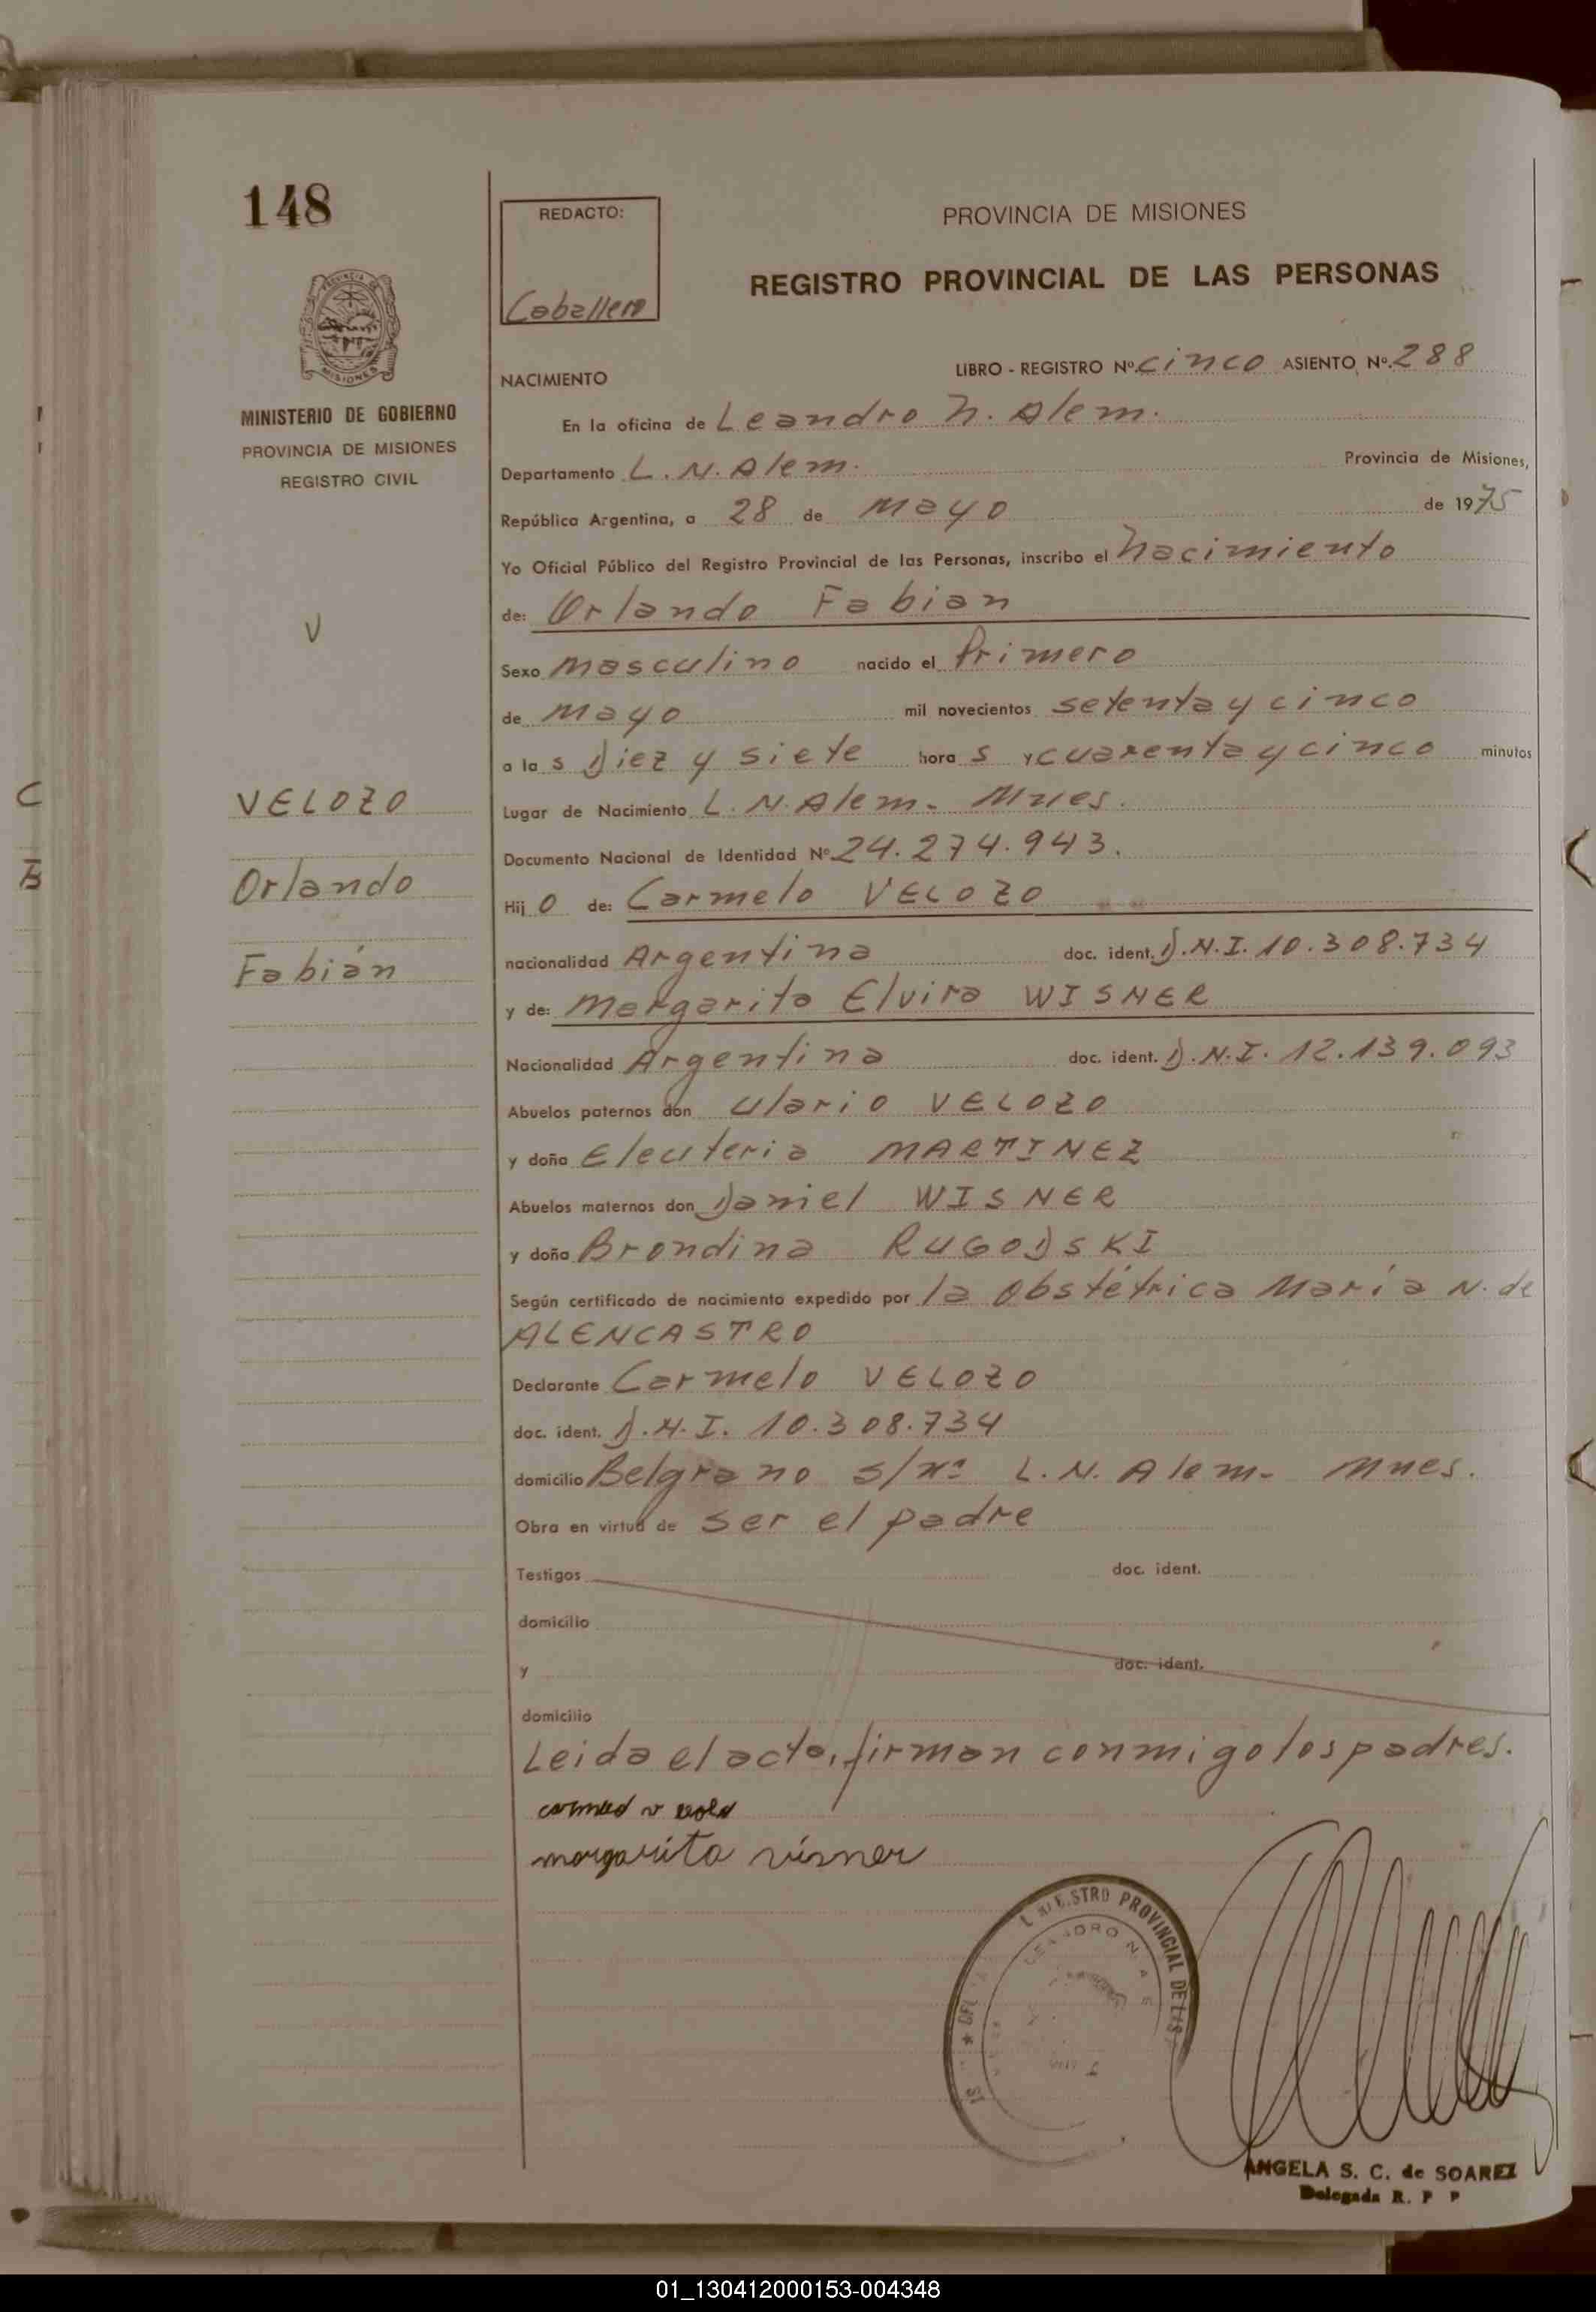 148
REDACTO:
Caballero
PROVINCIA DE MISIONES
REGISTRO PROVINCIAL DE LAS PERSONAS
MISIONES
MINISTERIO DE GOBIERNO
PROVINCIA DE MISIONES
REGISTRO CIVIL
V
VELOZO
Orlando
Fabián
NACIMIENTO
LIBRO - REGISTRO Nº. cinco ASIENTO Nº. 288
En la oficina de Leandro N. Alem.
Departamento L. N. Alem. Provincia de Misiones,
República Argentina, a 28 de Mayo de 1975
Yo Oficial Público del Registro Provincial de las Personas, inscribo el Nacimiento
de: Orlando Fabian
Sexo Masculino nacido el Primero
de Mayo mil novecientos setenta y cinco
a las Diez y siete horas y cuarenta y cinco minutos
Lugar de Nacimiento L. N. Alem. Mnes.
Documento Nacional de Identidad Nº 24.274.943.
Hijo de: Carmelo VELOZO
nacionalidad Argentina doc. ident. D.N.I. 10.308.734
y de: Margarita Elvira WISNER
Nacionalidad Argentina doc. ident. D.N.I. 12.139.093
Abuelos paternos don Ulario VELOZO
y doña Eleuteria MARTINEZ
Abuelos maternos don Daniel WISNER
y doña Brondina RUGODSKI
Según certificado de nacimiento expedido por la Obstétrica María N. de
ALENCASTRO
Declarante Carmelo VELOZO
doc. ident. D.N.I. 10.308.734
domicilio Belgrano s/nº L. N. Alem- Mnes.
Obra en virtud de ser el padre
Testigos doc. ident.
domicilio
y doc. ident.
domicilio
Leida el acta, firman conmigo los padres.
margarita visner
PROVINCIAL DE LAS
ANGELA S. C. de SOAREZ
Delegada R. P P
01_130412000153-004348